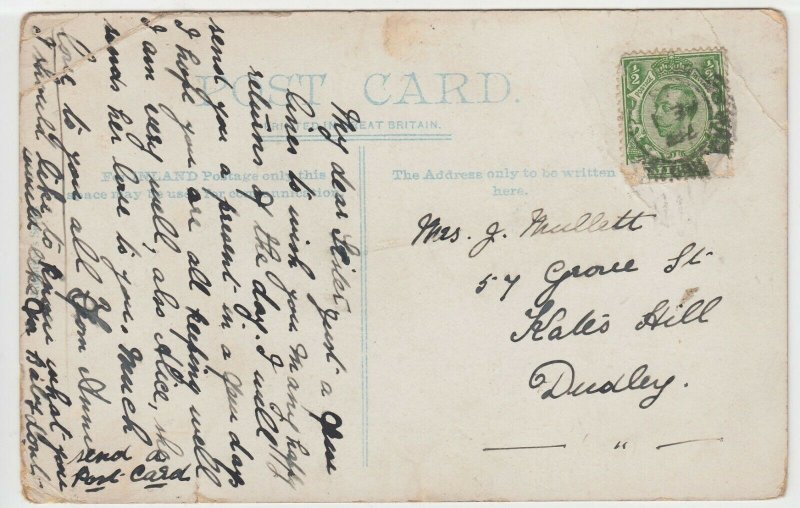 POST CARD.
PRINTED IN GREAT BRITAIN.
FOR INLAND Postage only this
space may be used for communication.
The Address only to be written
here.
My dear Sister, just a few
lines to wish you many happy
returns of the day. I will
send you a present in a few days
I hope you are all keeping well
I am very well, also Alice, she
sends her love to you. Much
love to you all from Annie
I should like to know what you
would like
send a
Post Card
Mrs. J. Mullett
57 Grove St
Kates Hill
Dudley.
"
1/2
1/2